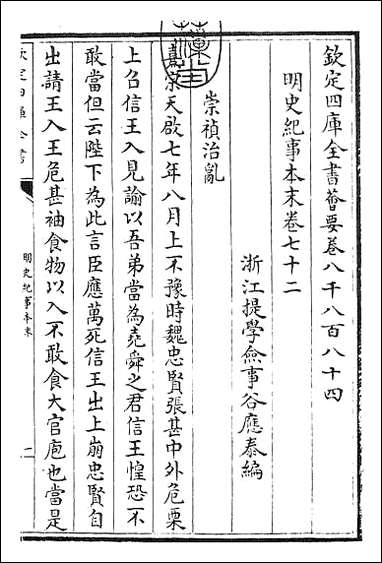 欽定四庫全書薈要卷八千八百八十四
明史紀事本末卷七十二
浙江提學僉事谷應泰編
崇禎治亂
熹宗天啟七年八月上不豫時魏忠賢張甚中外危栗
上召信王入見諭以吾弟當為堯舜之君信王惶恐不
敢當但云陛下為此言臣應萬死信王出上崩忠賢自
出請王入王危甚袖食物以入不敢食大官庖也當是
欽定四庫全書
明史紀事本末